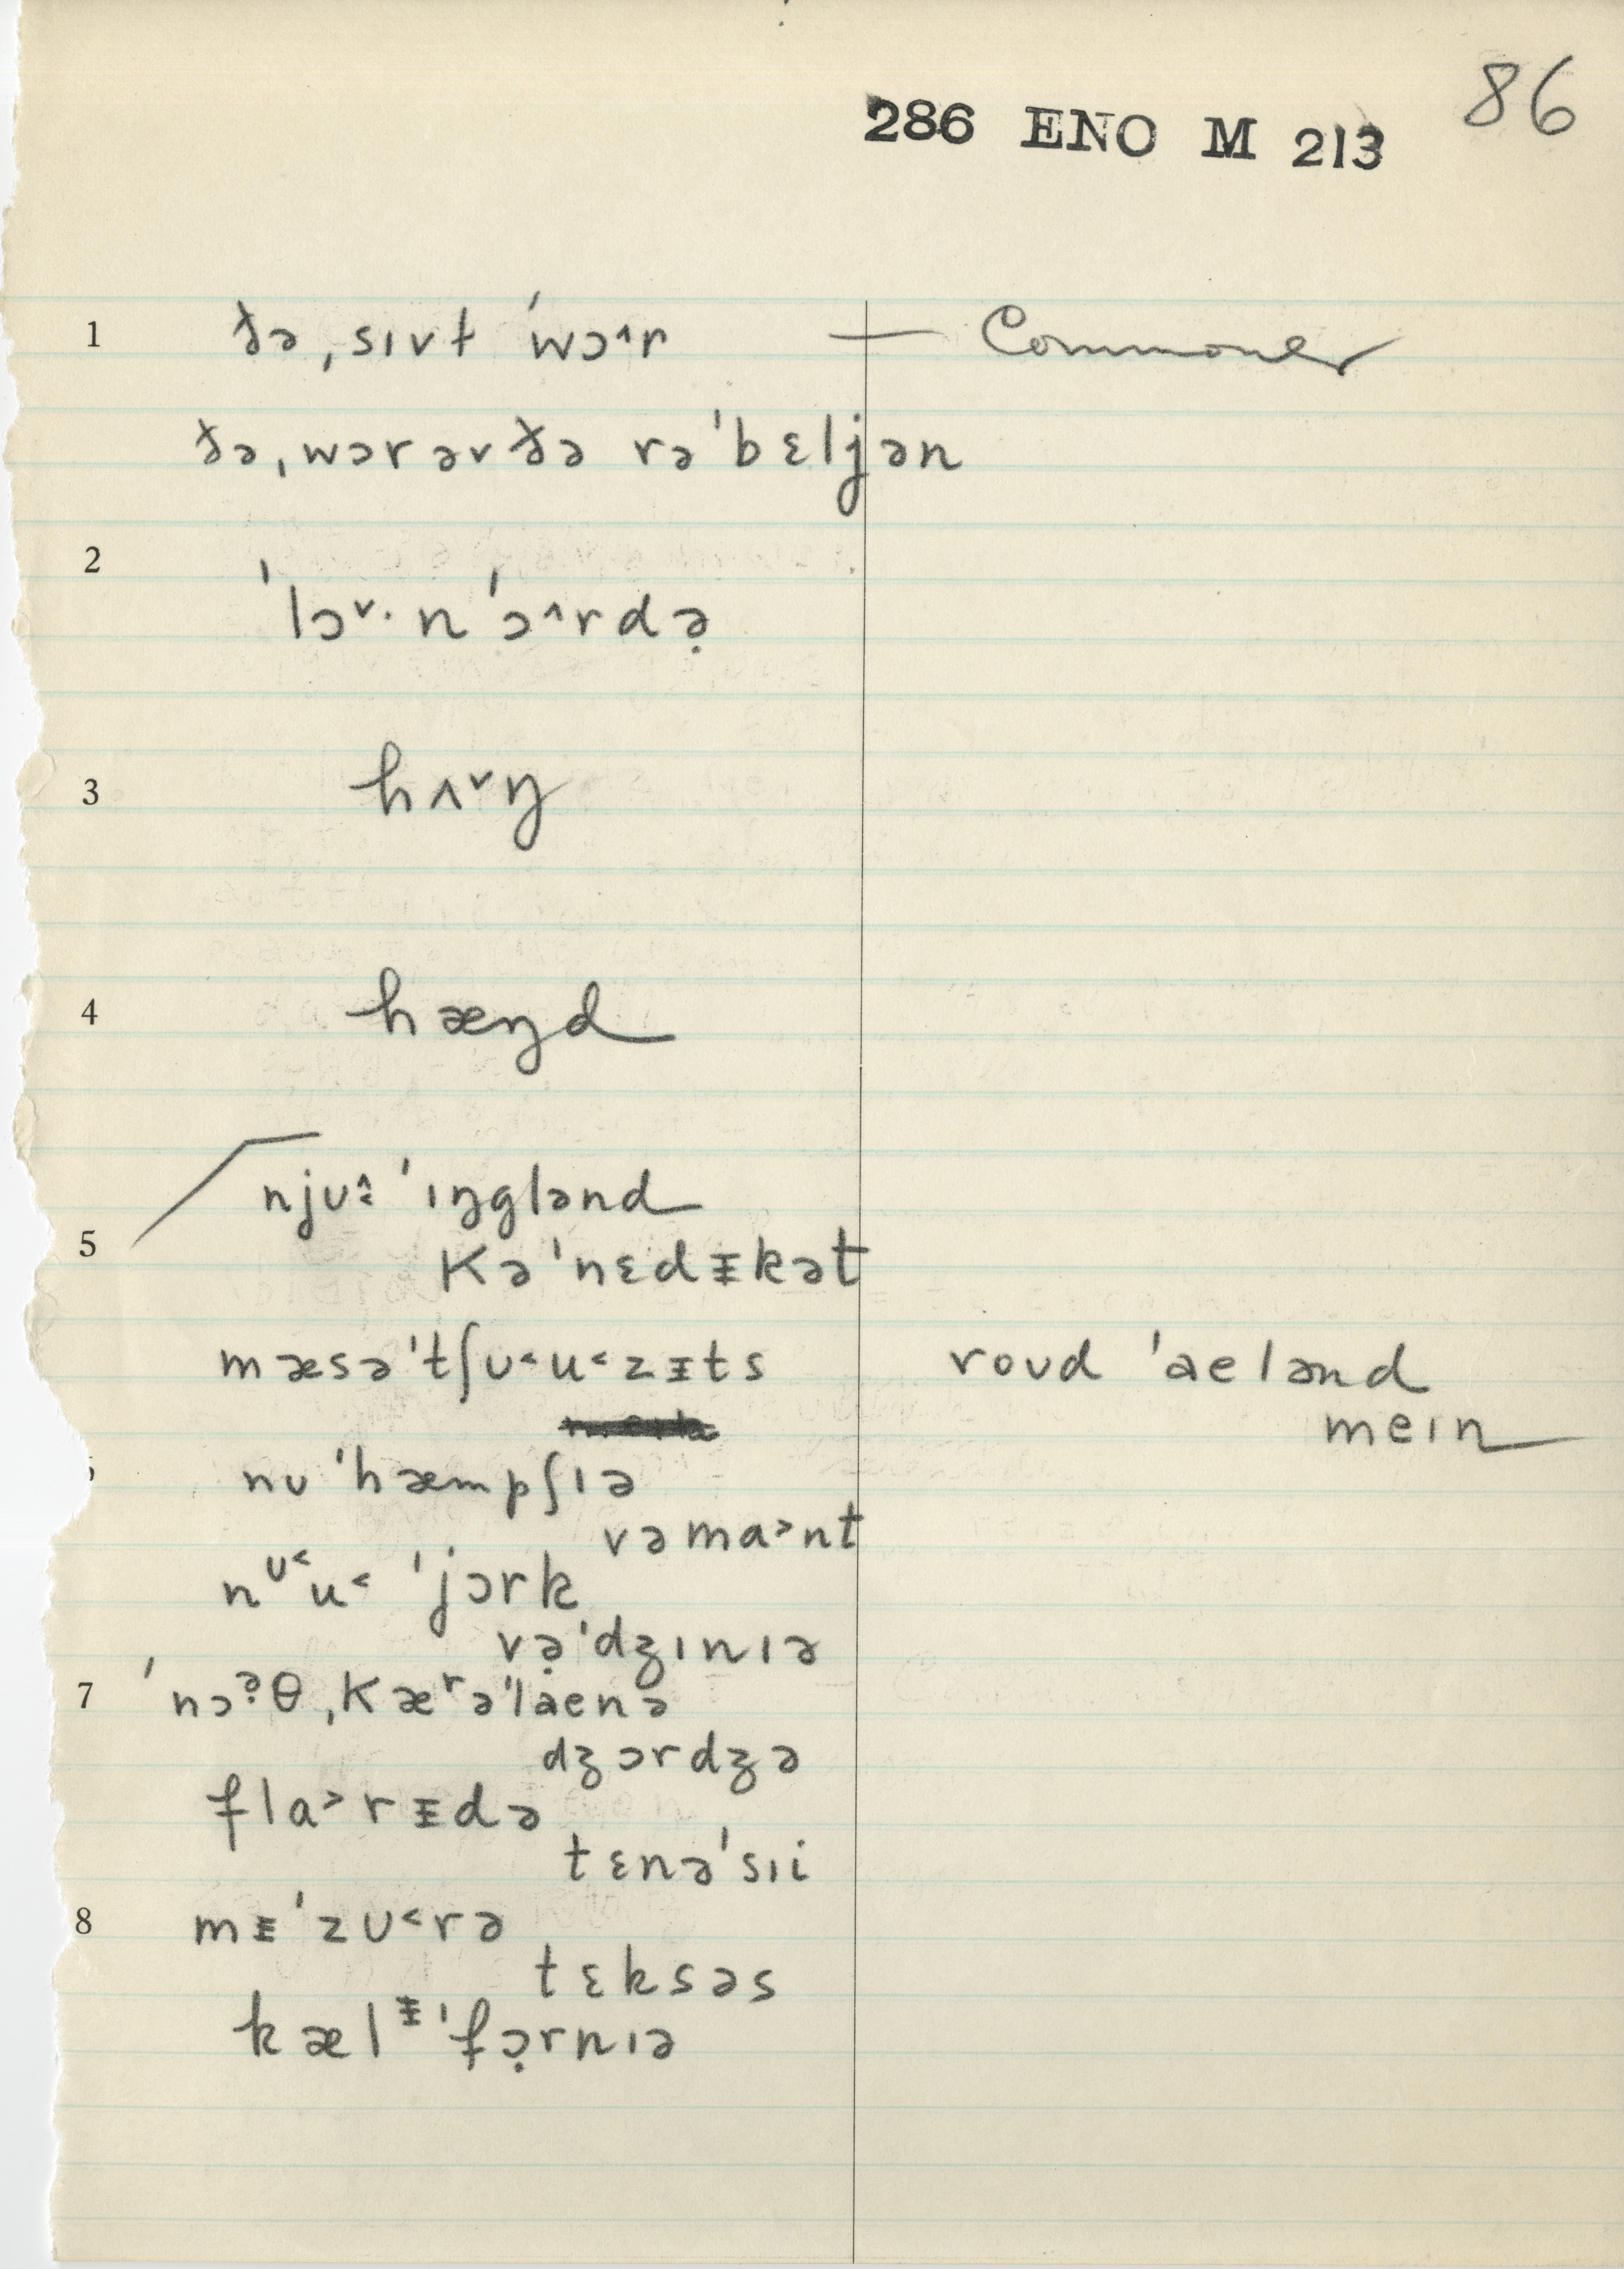 86
286 ENO M 213
1 ðə ˌsɪvɫ ˈwɔ˄r — Commoner
ðə ˌwɔr əv ðə rəˈbɛljən
2
ˈlɔ˅· n ˈɔ˄rdə̣
3 hʌ˅ŋ
4 hæŋd
njʊ˄˂ ˈɪŋglənd
5
Kəˈnɛdᵻkət
mæsəˈtʃʊ˂u˂zᵻts roʊd ˈaelənd
meɪn
nʊ ˈhæmpʃɪə
vəma˃nt
nᶷ˂u˂ ˈjɔrk
və̣ˈdʒɪnɪə
7 ˈnɔᵊ̣θ ˌKæʳəˈlaenə
dʒɔrdʒə
fla˃rᵻdə
tɛnəˈsɪi
8 mᵻˈzʊ˂rə
tɛksəs
kælᵻˈfɔ̣rnɪə